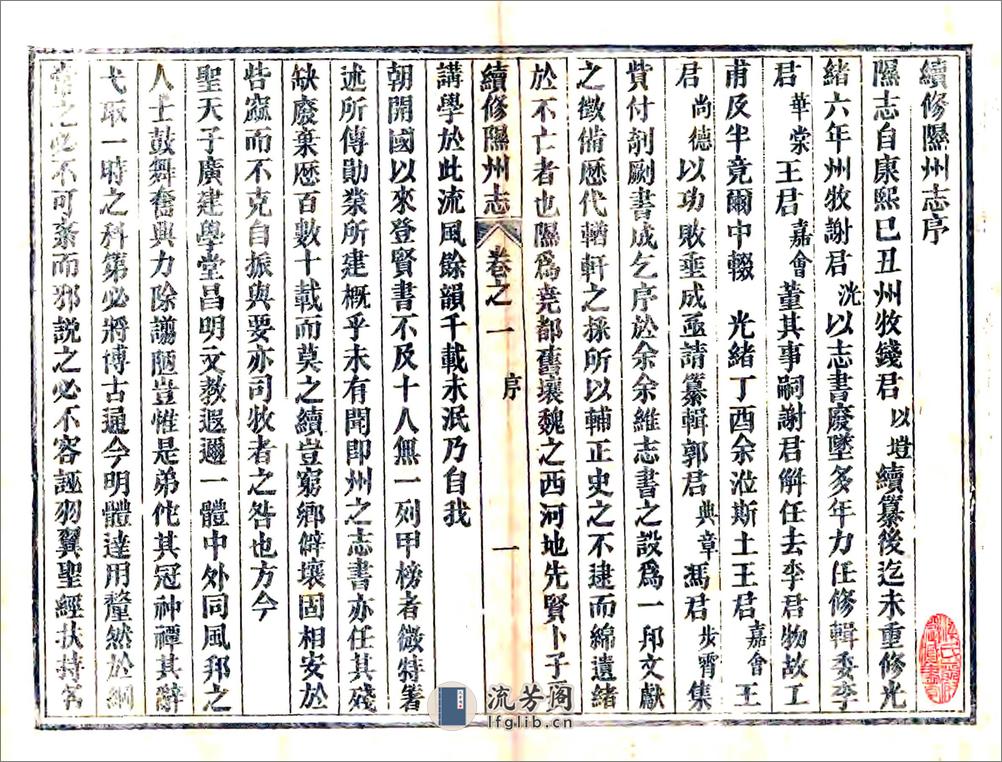 續修隰州志序
隰志自康熙己丑州牧錢君以塏續纂後迄未重修光
緒六年州牧謝君洸以志書廢墜多年力任修輯委李
君華棠王君嘉會董其事嗣謝君解任去李君物故工
甫及半竟爾中輟 光緒丁酉余涖斯土王君嘉會王
君尚德以功敗垂成亟請纂輯郭君典章馮君步霄集
貲付剞劂書成乞序於余余維志書之設爲一邦文獻
之徵備歷代輶軒之採所以輔正史之不逮而綿遺緒
於不亡者也隰爲堯都舊壤魏之西河地先賢卜子
續修隰州志 卷之一 序 一
講學於此流風餘韻千載未泯乃自我
朝開國以來登賢書不及十人無一列甲榜者微特著
述所傳勛業所建概乎未有聞即州之志書亦任其殘
缺廢棄歷百數十載而莫之續豈窮鄉僻壤固相安於
呰窳而不克自振與要亦司牧者之咎也方今
聖天子廣建學堂昌明文教遐邇一體中外同風邦之
人士鼓舞奮興力除譾陋豈惟是弟佗其冠神禫其辭
弋取一時之科第必將博古通今明體達用釐然於綱
常之必不可紊而邪說之必不容誣羽翼聖經扶持名
流芳阁
lfglib.cn